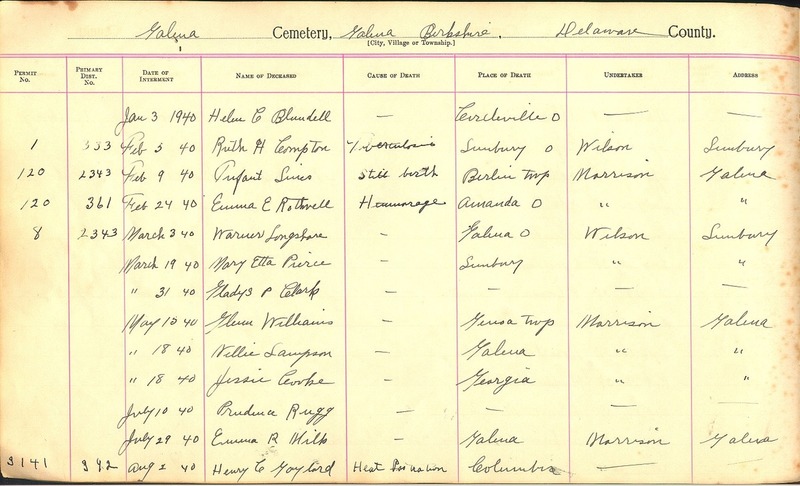 Galena Cemetery, Galena Berkshire, Delaware County.
[City, Village or Township.]
Permit No. Primary Dist. No. Date of Interment Name of Deceased Cause of Death Place of Death Undertaker Address
Jan 3 1940 Helen C Blundell — Circleville O — —
1 353 Feb 5 40 Ruth H Compton Tuberculosis Sunbury O Wilson Sunbury
120 2343 Feb 9 40 Infant Sines Still birth Berlin twp Morrison Galena
120 361 Feb 24 40 Emma E Rothwell Hemmorage Amanda O " "
8 2343 March 3 40 Warner Longshore — Galena O Wilson Sunbury
March 19 40 Mary Etta Pierce — Sunbury " "
" 31 40 Gladys P Clark — — — —
May 15 40 Glenn Williams — Genoa twp Morrison Galena
" 18 40 Nillie Lampson — Galena " "
" 18 40 Jessie Cooke — Georgia " "
July 10 40 Prudence Rugg — — — —
July 29 40 Emma R — Galena Morrison Galena
3141 392 Aug 2 40 Henry C Gaylord Heat Columbus —